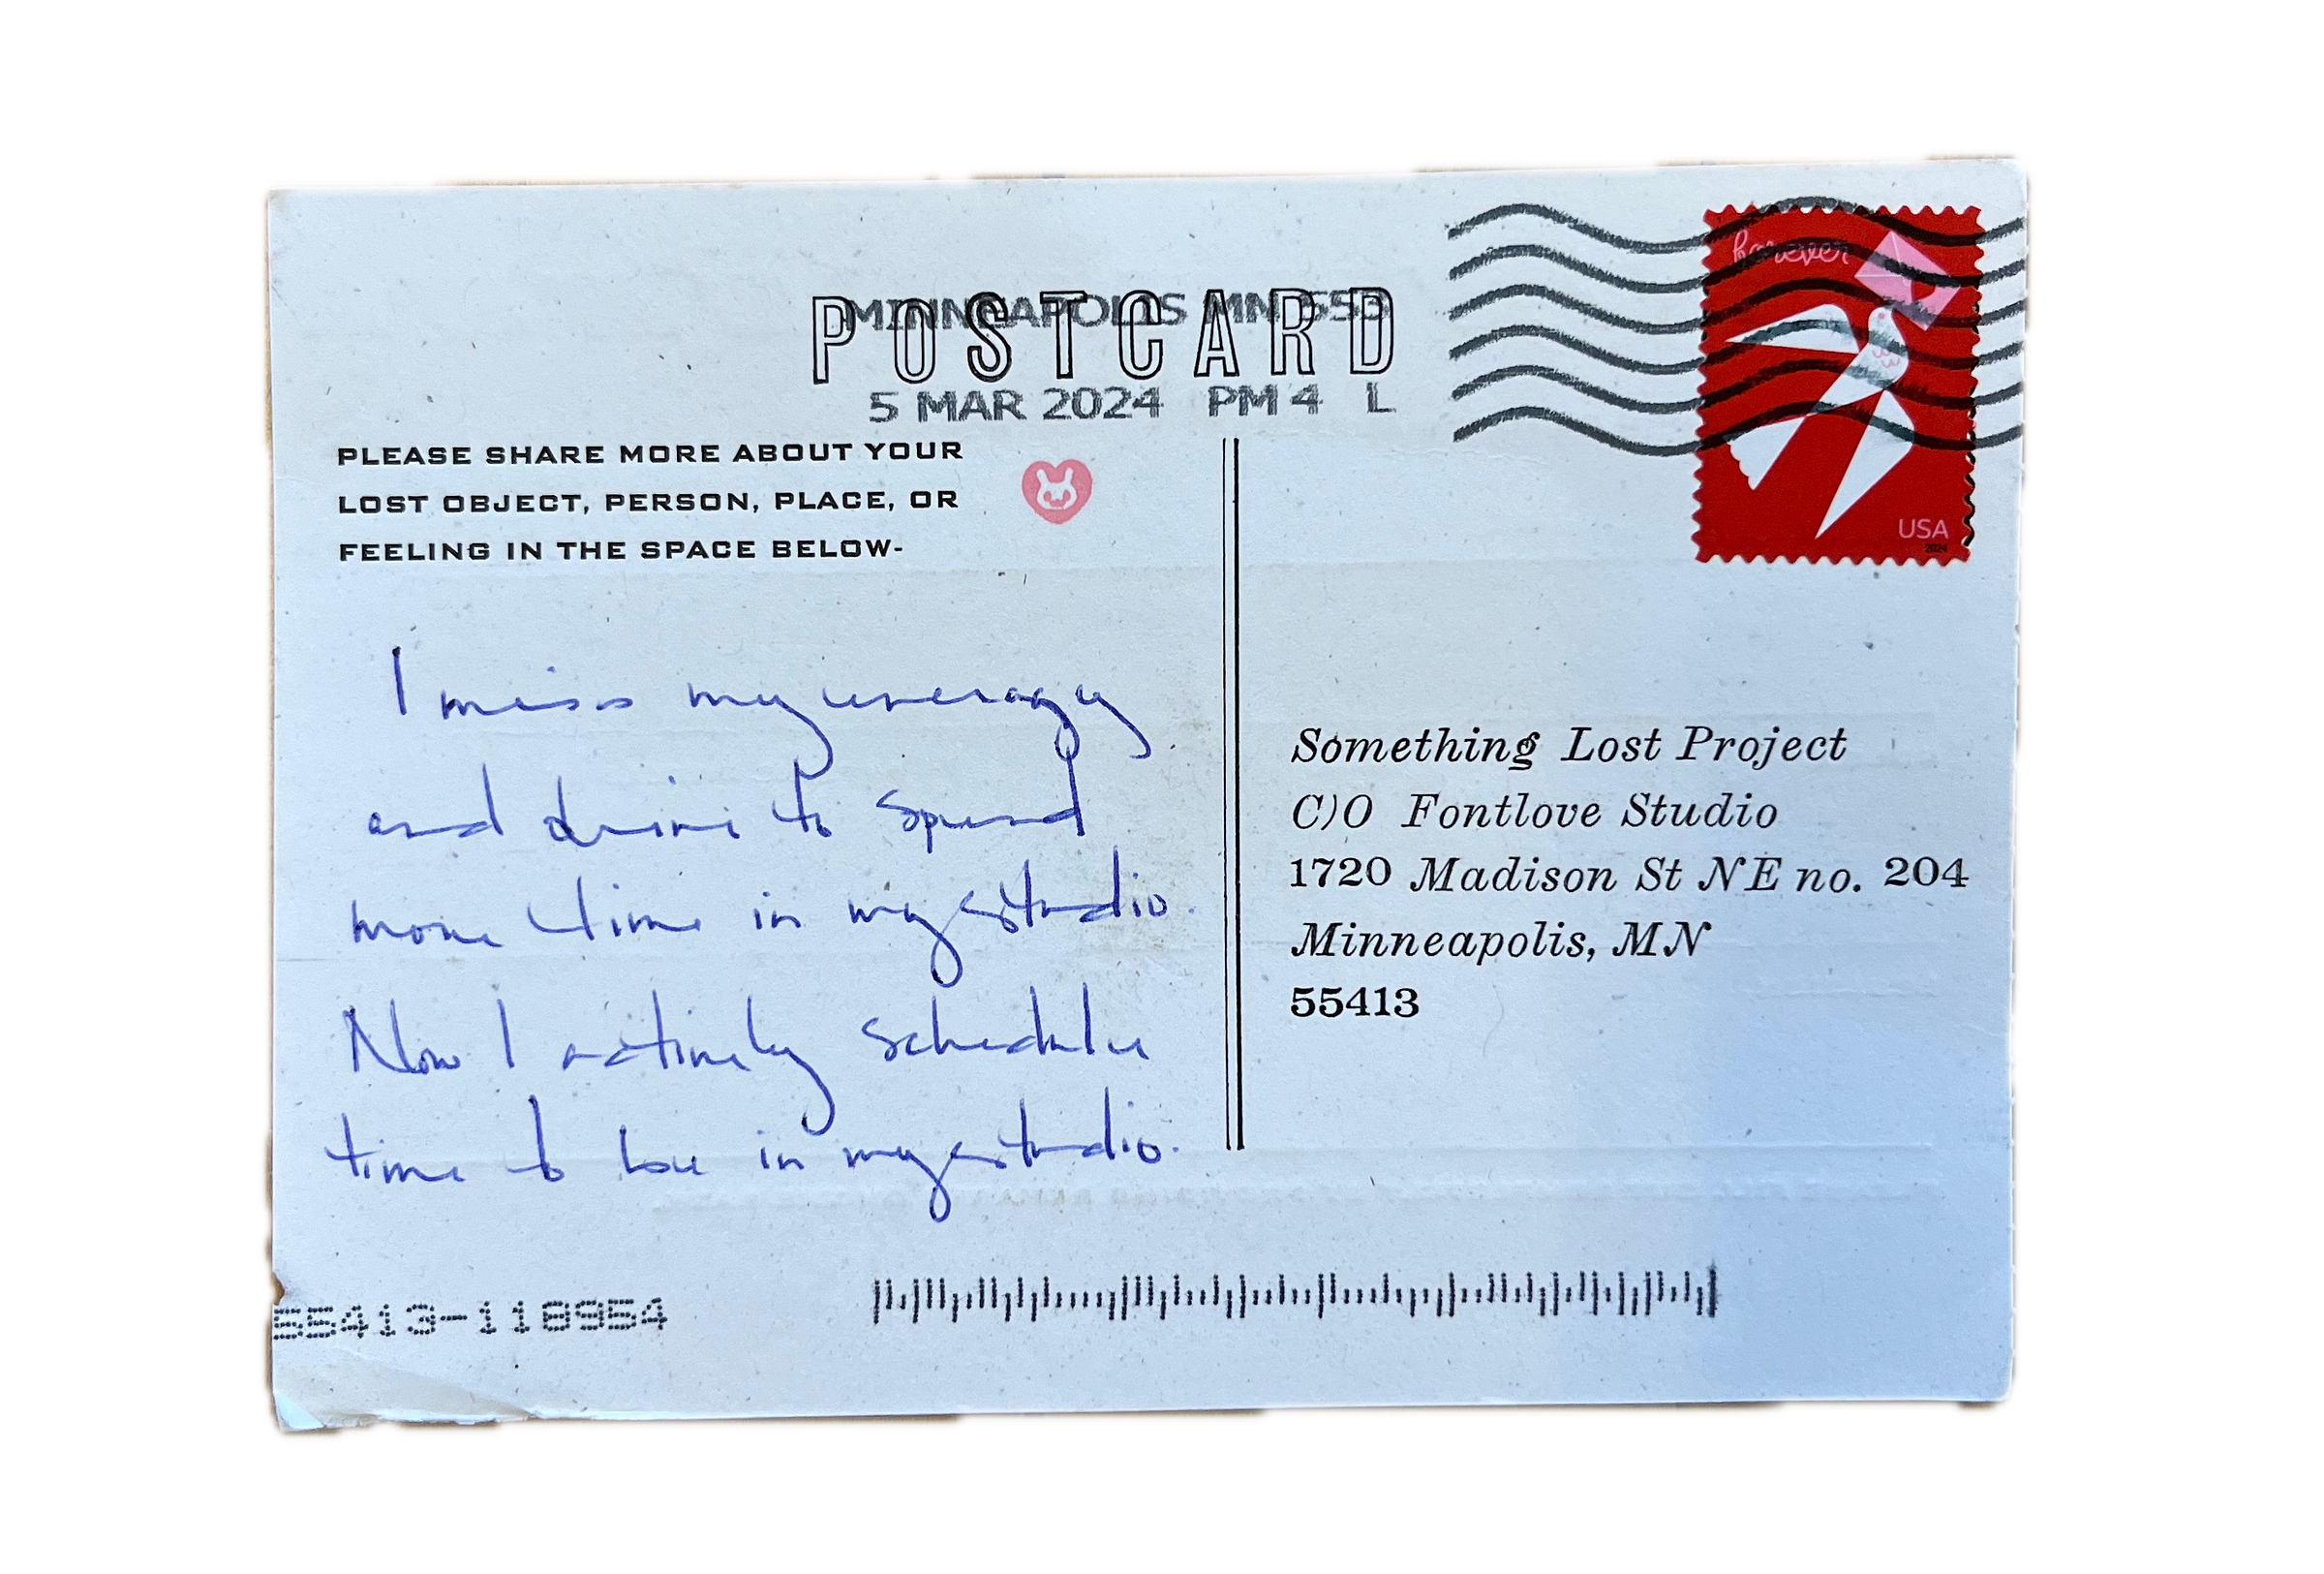 MINNEAPOLIS MN 553
POSTCARD
5 MAR 2024 PM 4 L
forever
USA
2024
PLEASE SHARE MORE ABOUT YOUR
LOST OBJECT, PERSON, PLACE, OR
FEELING IN THE SPACE BELOW-
I miss my energy
and drive to spend
more time in my studio.
Now I actively schedule
time to be in my studio.
Something Lost Project
C)O Fontlove Studio
1720 Madison St NE no. 204
Minneapolis, MN
55413
55413-118954